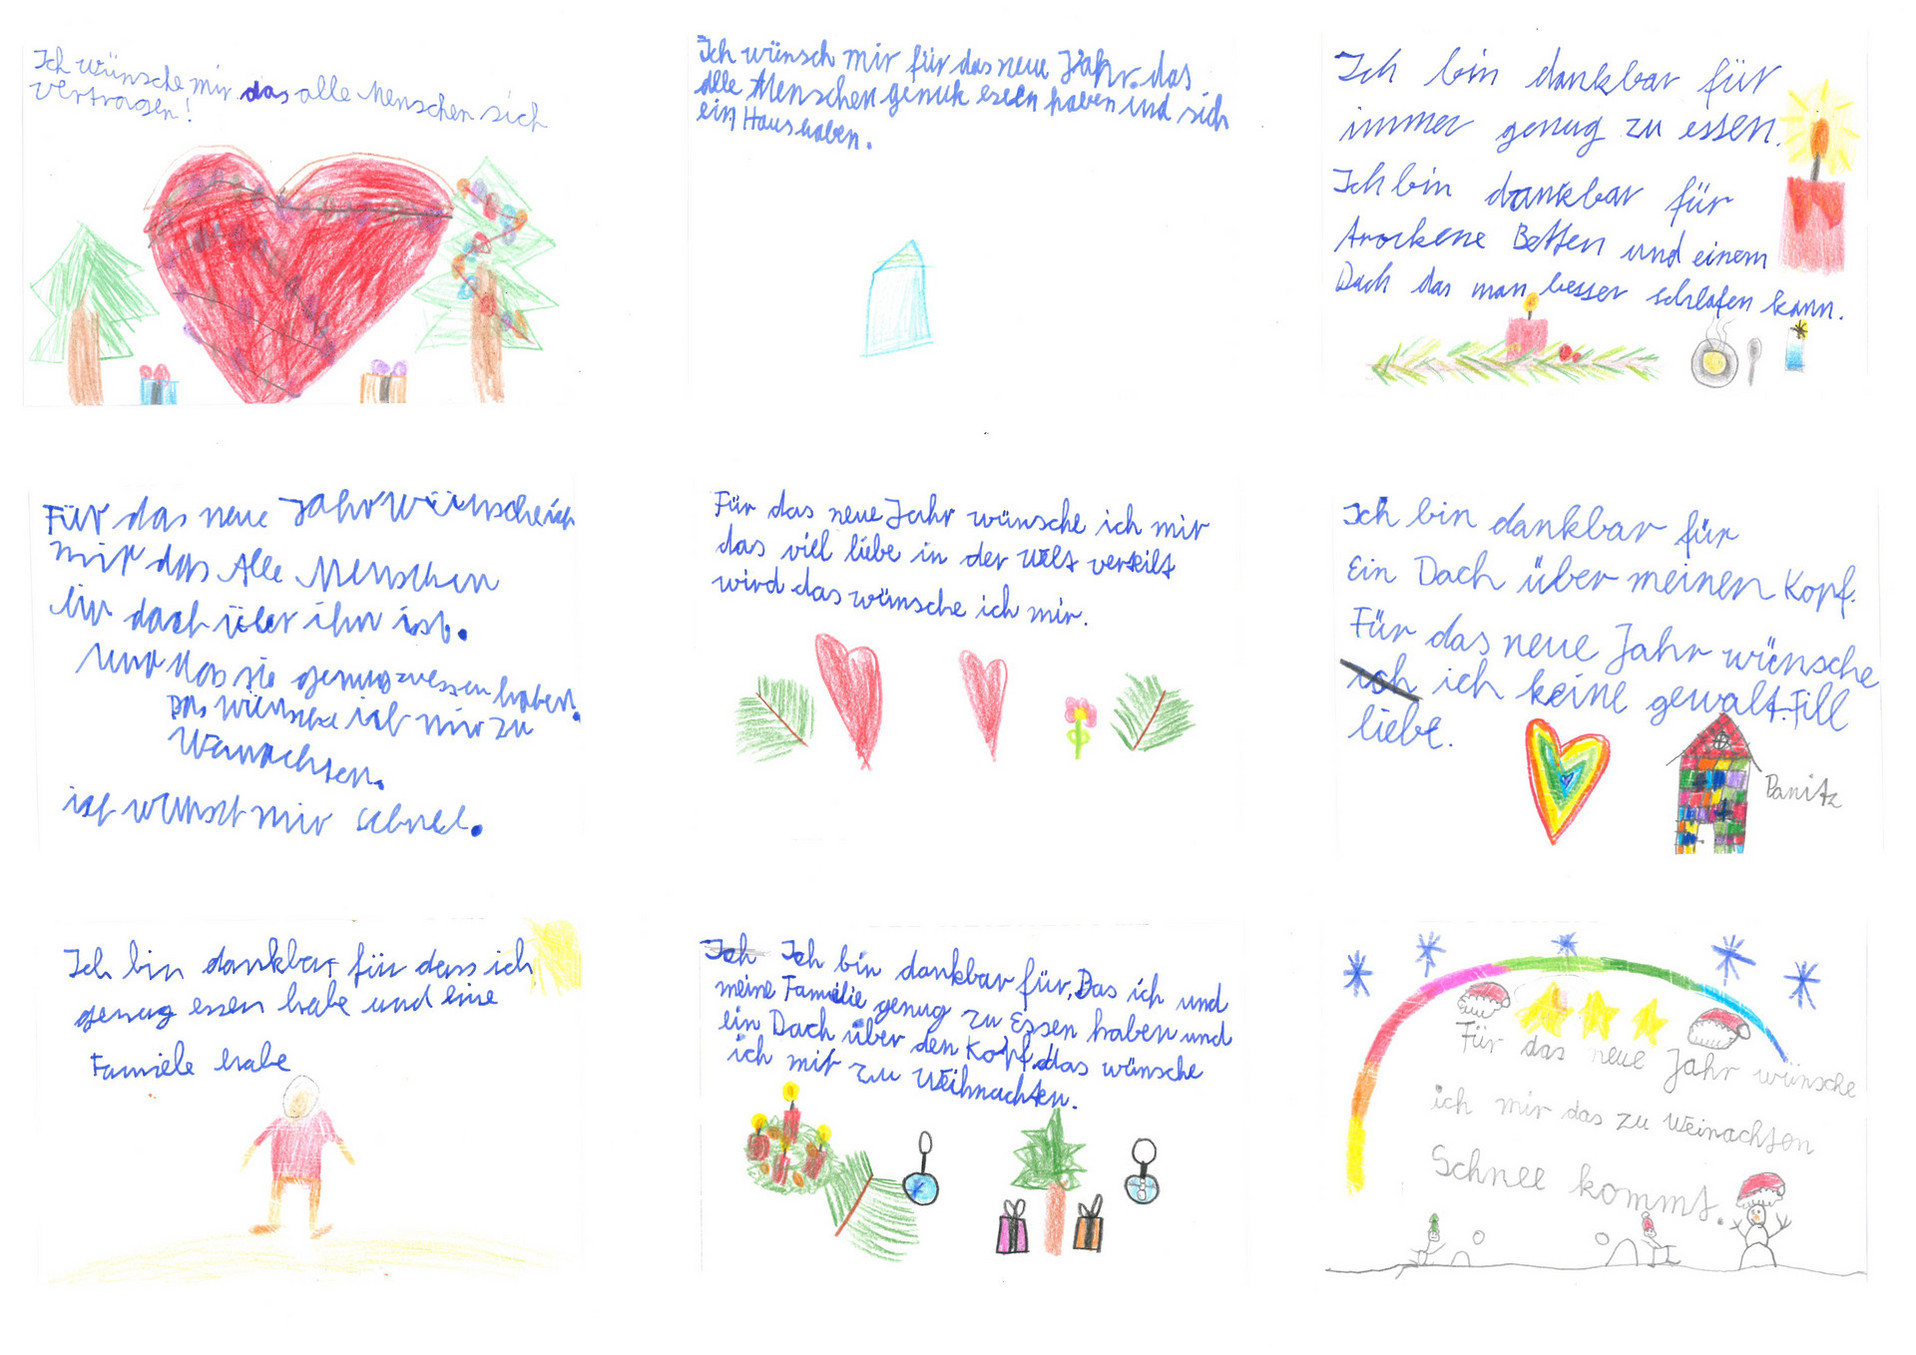 Ich wünsche mir das alle Menschen sich
vertragen!
Ich wünsch mir für das neue Jahr das
alle Menschen genuk esen haben und sich
ein Haus haben.
Ich bin dankbar für
immer genug zu essen.
Ich bin dankbar für
trockene Betten und einem
Dach das man besser schlafen kann.
Für das neue Jahr wünsche ich
mir das Alle Menschen
ein dach über ihn ist.
und das sie genug zu essen haben.
Das wünsche ich mir zu
Weinachten.
ich wünsch mir schnee.
Für das neue Jahr wünsche ich mir
das viel liebe in der Welt verteilt
wird das wünsche ich mir.
Ich bin dankbar für
Ein Dach über meinen Kopf.
Für das neue Jahr wünsche
ich ich keine gewalt. Fill
liebe.
Danitz
Ich bin dankbar für dass ich
genug essen habe und eine
Famiele habe
Ich Ich bin dankbar für, Das ich und
meine Familie genug zu Essen haben und
ein Dach über den Kopf. das wünsche
ich mir zu Weihnachten.
Für das neue Jahr wünsche
ich mir das zu Weinachten
Schnee kommt.